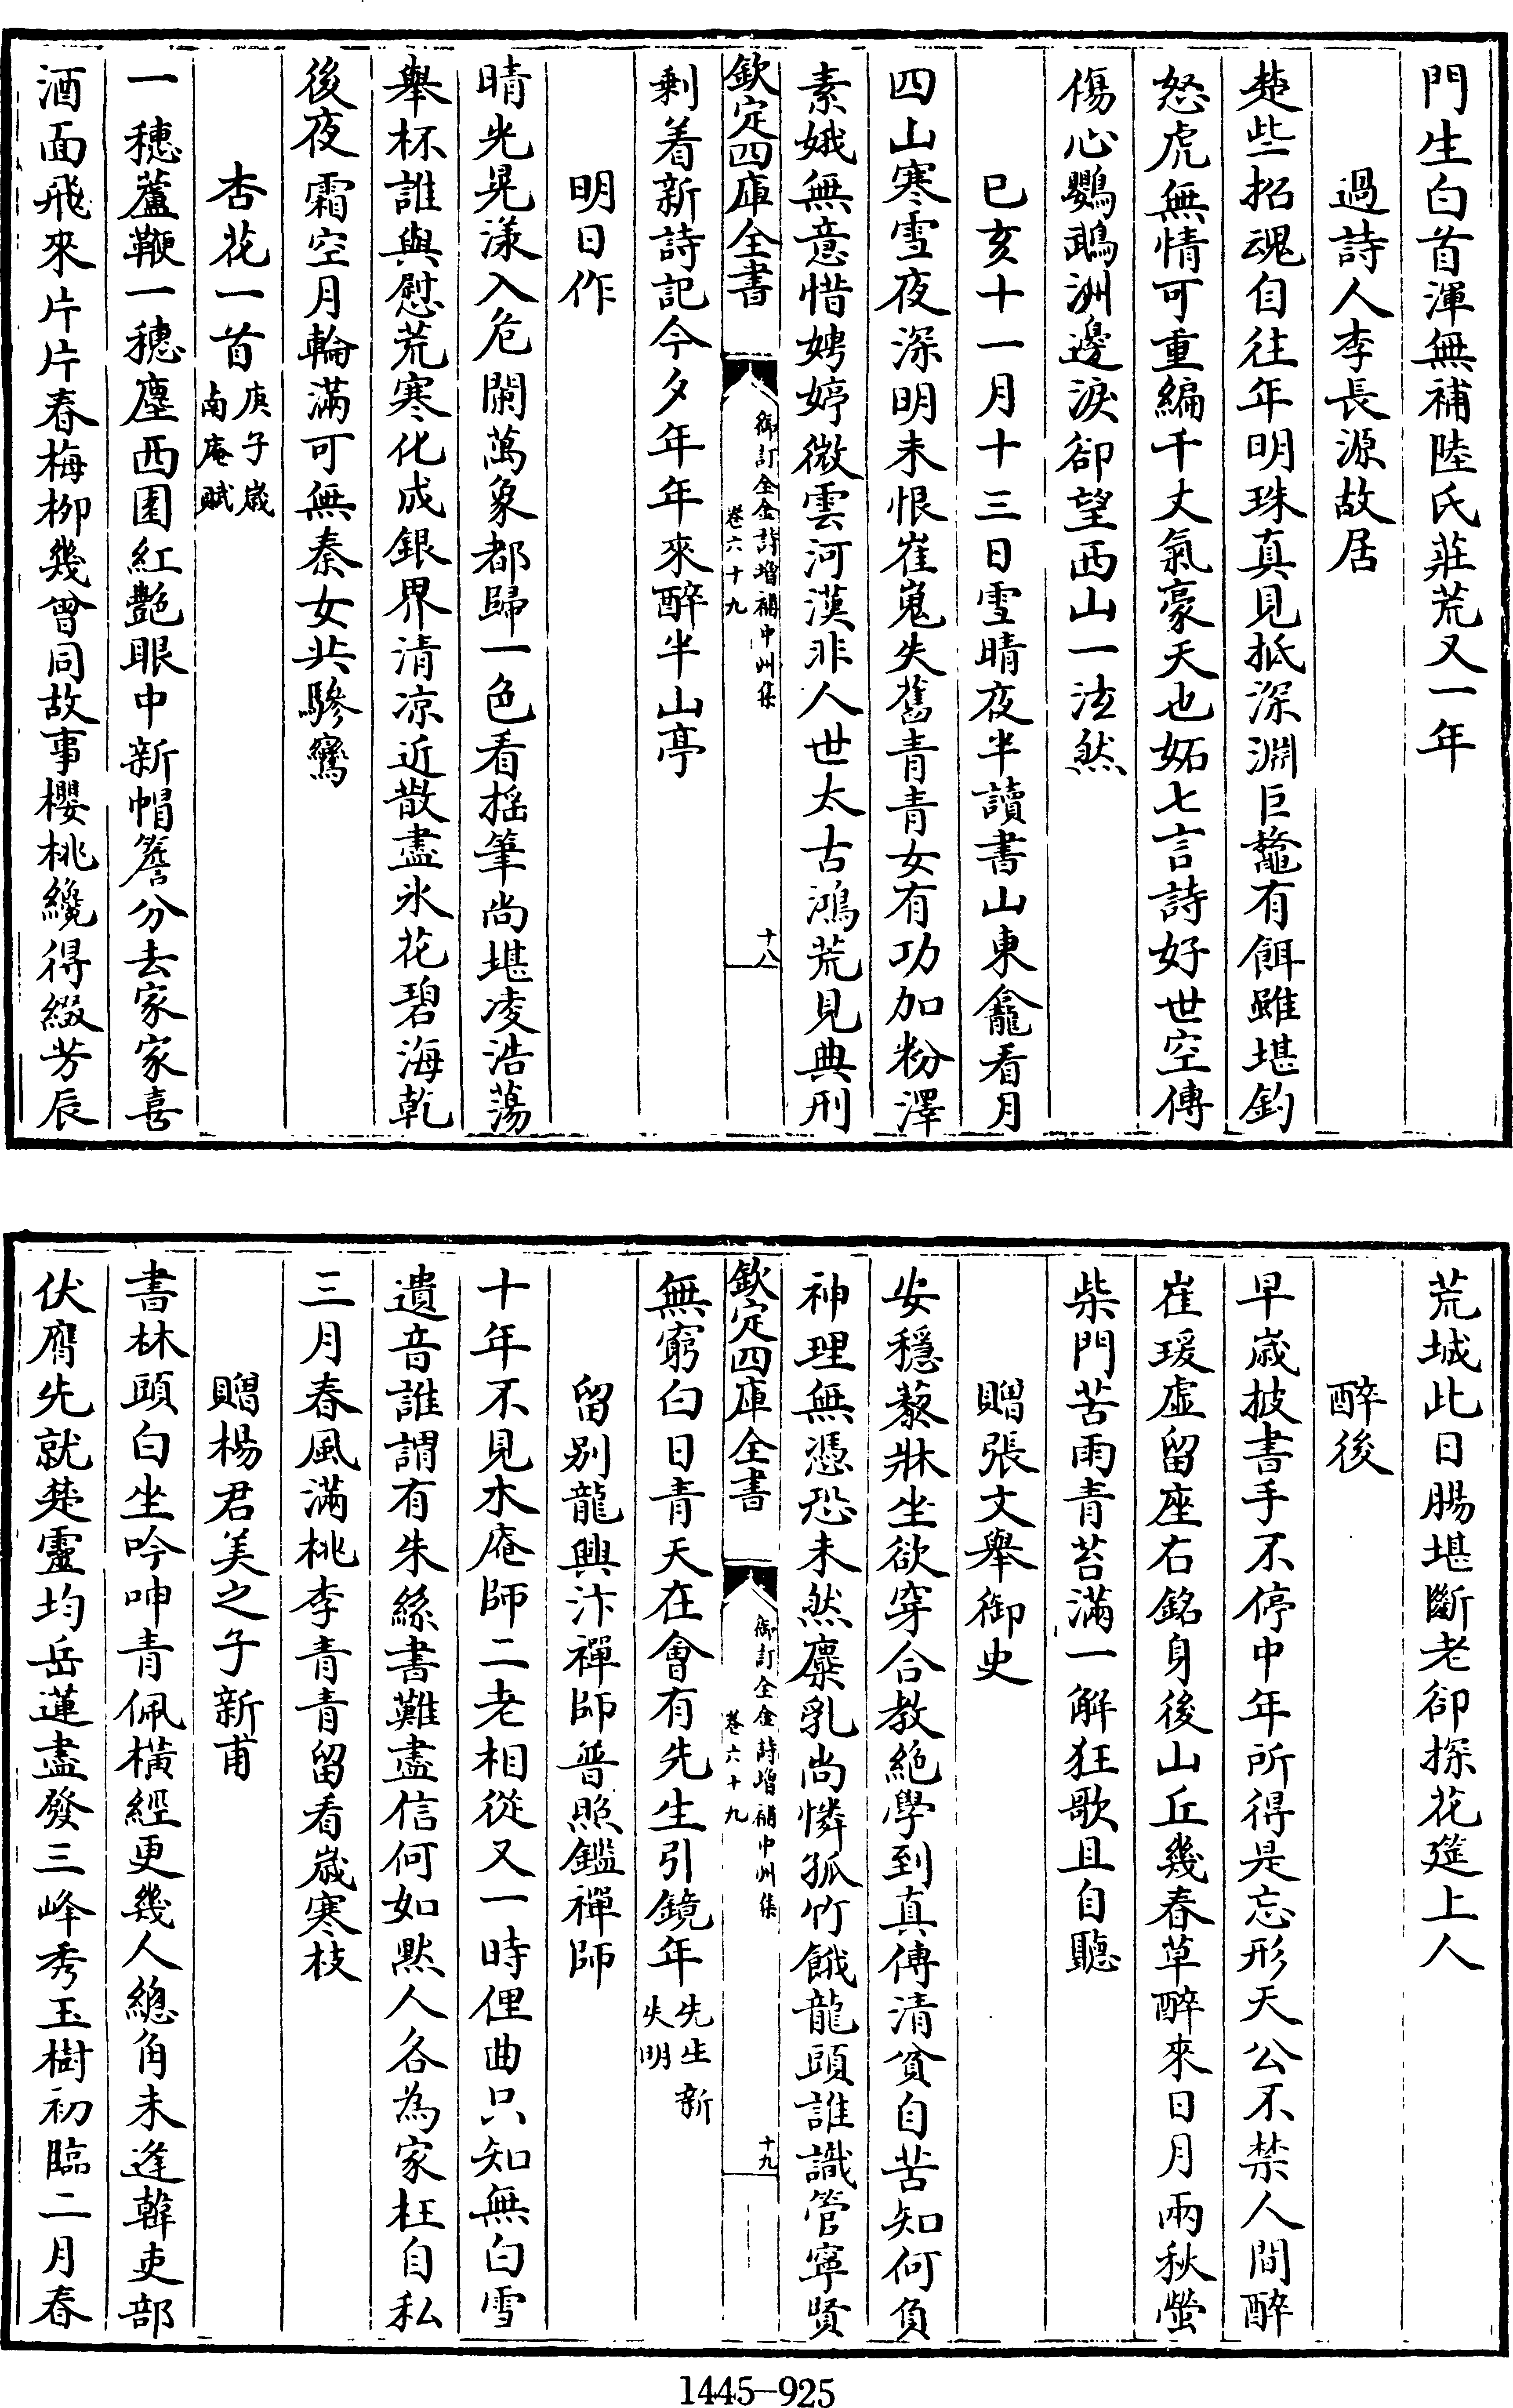 門生白首渾無補陸氏莊荒又一年
過詩人李長源故居
楚些招魂自往年明珠真見抵深淵巨鼇有餌雖堪釣
怒虎無情可重編千丈氣豪天也妬七言詩好世空傳
傷心鸚鵡洲邊淚卻望西山一泫然
已亥十一月十三日雪晴夜半讀書山東龕看月
四山寒雪夜深明未恨崔嵬失舊青青女有功加粉澤
素娥無意惜娉婷微雲河漢非人世太古鴻荒見典刑
欽定四庫全書
御訂全金詩增補中州集
卷六十九
十八
剩着新詩記今夕年年來醉半山亭
明日作
晴光晃漾入危闌萬象都歸一色看揺筆尚堪凌浩蕩
舉杯誰與慰荒寒化成銀界清凉近散盡氷花碧海乾
後夜霜空月輪滿可無秦女共驂鸞
杏花一首庚子嵗南庵賦
一穗蘆鞭一穗塵西園紅艶眼中新帽簷分去家家喜
酒面飛來片片春梅柳幾曾同故事櫻桃纔得綴芳辰
荒城此日腸堪斷老卻探花筵上人
醉後
早嵗披書手不停中年所得是忘形天公不禁人間醉
崔瑗虛留座右銘身後山丘幾春草醉來日月兩秋螢
柴門苦雨青苔滿一解狂歌且自聽
贈張文舉御史
安穩藜牀坐欲穿合教絶學到真傳清貧自苦知何負
神理無憑恐未然麋乳尚憐孤竹餓龍頭誰識管寧賢
欽定四庫全書
御訂全金詩增補中州集
卷六十九
十九
無窮白日青天在會有先生引鏡年先生新失明
留别龍興汴禪師普照鑑禪師
十年不見木庵師二老相從又一時俚曲只知無白雪
遺音誰謂有朱絲書難盡信何如黙人各為家枉自私
三月春風滿桃李青青留看嵗寒枝
贈楊君美之子新甫
書林頭白坐吟呻青佩橫經更幾人總角未逢韓吏部
伏膺先就楚靈均岳蓮盡發三峰秀玉樹初臨二月春
1445-925